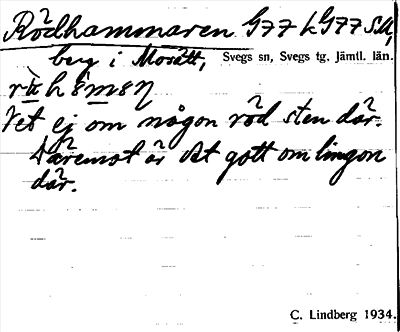 Rödhammaren G77 k G77 S.U,
berg i Morätt, Svegs sn, Svegs tg. Jämtl. län.
Vet ej om någon röd sten där.
Däremot är det gott om lingon
där.
C. Lindberg 1934.